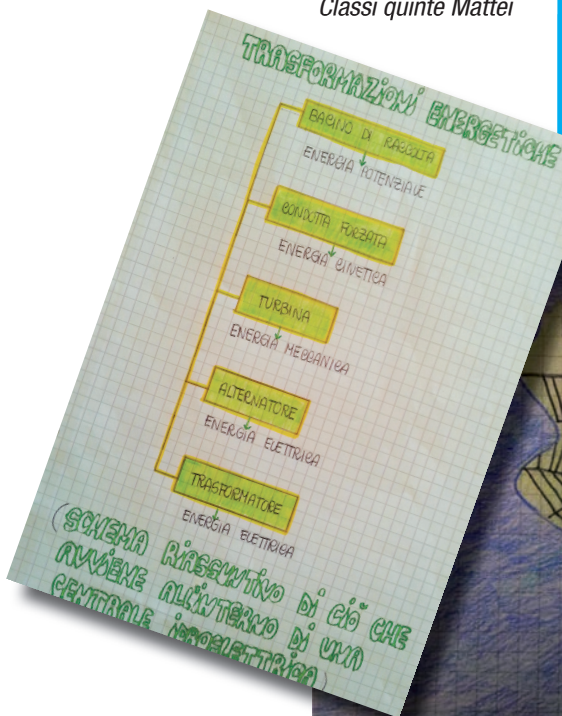 Classi quinte Mattei
TRASFORMAZIONI ENERGETICHE
BACINO DI RACCOLTA
ENERGIA POTENZIALE
CONDOTTA FORZATA
ENERGIA CINETICA
TURBINA
ENERGIA MECCANICA
ALTERNATORE
ENERGIA ELETTRICA
TRASFORMATORE
ENERGIA ELETTRICA
(SCHEMA RIASSUNTIVO DI CIÒ CHE
AVVIENE ALL'INTERNO DI UNA
CENTRALE IDROELETTRICA)